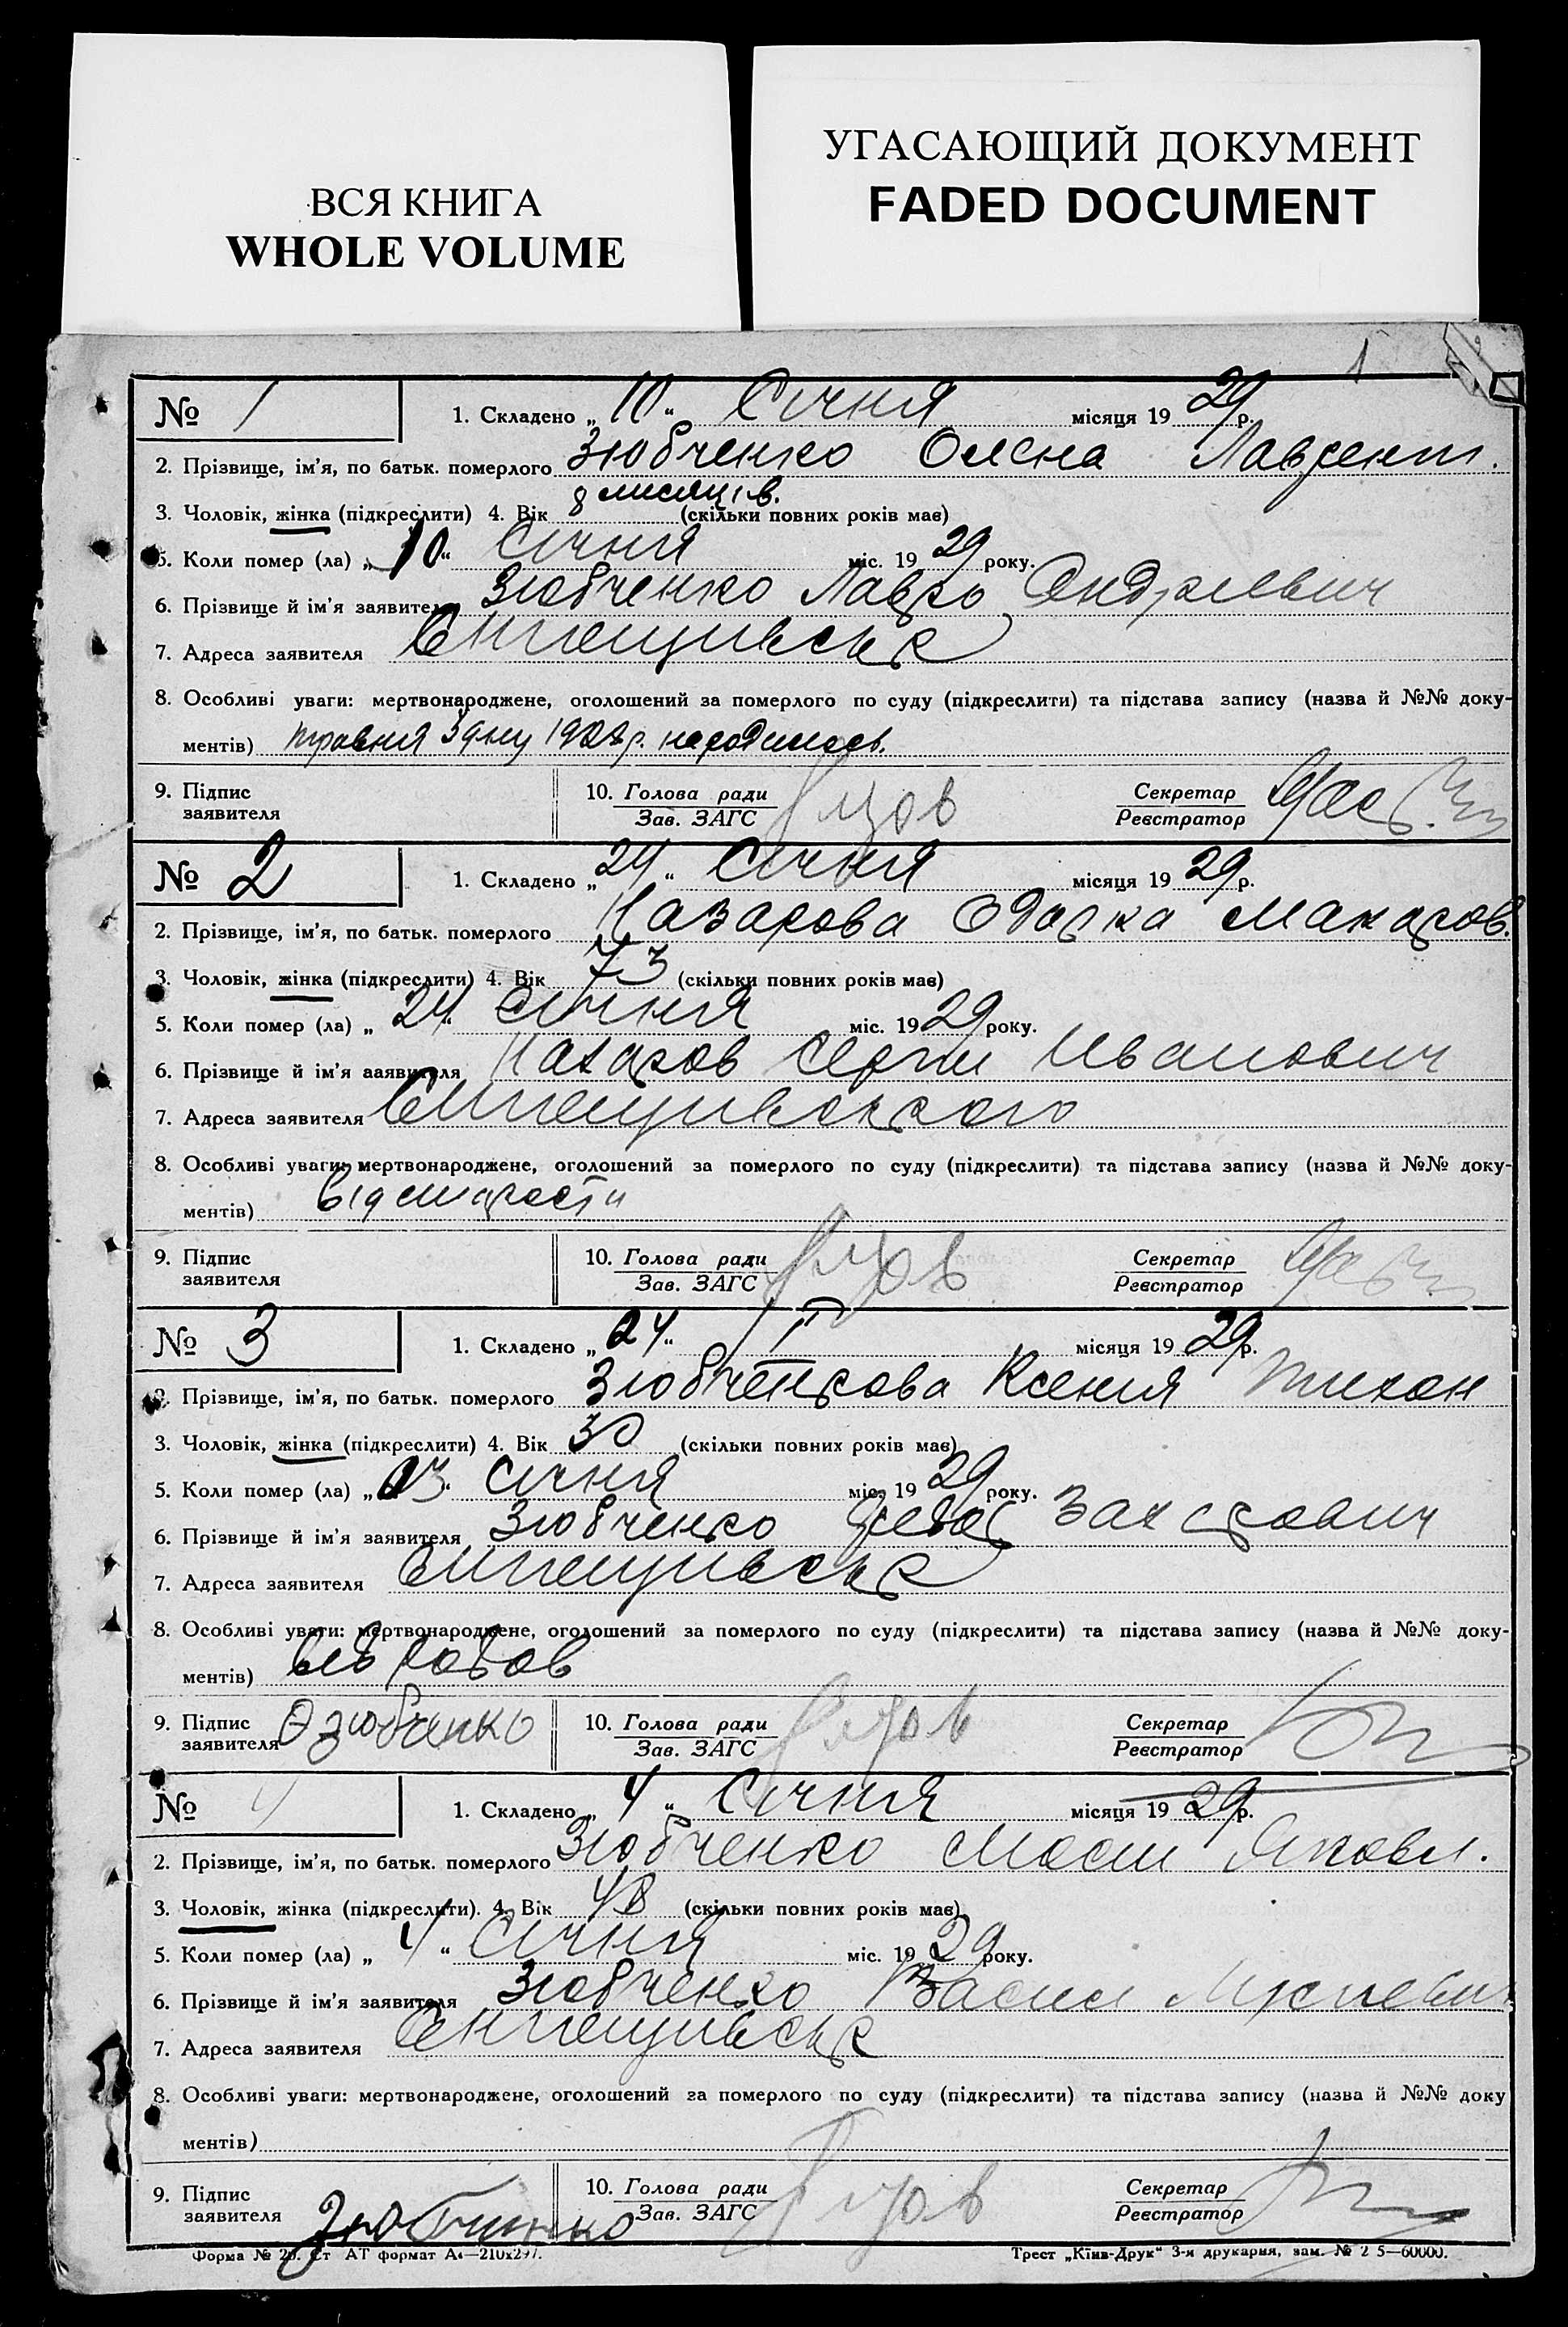 ВСЯ КНИГА
WHOLE VOLUME
УГАСАЮЩИЙ ДОКУМЕНТ
FADED DOCUMENT
1
№ 1
1. Складено „10“ Січня місяця 1929р.
2. Прізвище, ім'я, по батьк. померлого Зюбченко Олена Лаврент.
3. Чоловік, жінка (підкреслити) 4. Вік 8 мисяців. (скільки повних років має)
5. Коли помер (ла) „10“ Січня міс. 1929 року.
6. Прізвище й ім'я заявителя Зюбченко Лавро Андрієвич
7. Адреса заявителя
8. Особливі уваги: мертвонароджене, оголошений за померлого по суду (підкреслити) та підстава запису (назва й №№ доку-
ментів) травня 3 дну 1928 р. народилась.
9. Підпис заявителя
10. Голова ради
Зав. ЗАГС
Секретар
Реєстратор
№ 2
1. Складено „24“ Січня місяця 1929р.
2. Прізвище, ім'я, по батьк. померлого Назарова Одарка Макаров.
3. Чоловік, жінка (підкреслити) 4. Вік 73 (скільки повних років має)
5. Коли помер (ла) „24“ Січня міс. 1929 року.
6. Прізвище й ім'я заявителя Назаров Сергій Иванович
7. Адреса заявителя
8. Особливі уваги: мертвонароджене, оголошений за померлого по суду (підкреслити) та підстава запису (назва й №№ доку-
ментів) від старости
9. Підпис заявителя
10. Голова ради
Зав. ЗАГС
Секретар
Реєстратор
№ 3
1. Складено „24“ I місяця 1929р.
2. Прізвище, ім'я, по батьк. померлого Зюбченкова Ксения Тихон
3. Чоловік, жінка (підкреслити) 4. Вік 30 (скільки повних років має)
5. Коли помер (ла) „23“ Січня міс. 1929 року.
6. Прізвище й ім'я заявителя Зюбченко Федор Захарович
7. Адреса заявителя
8. Особливі уваги: мертвонароджене, оголошений за померлого по суду (підкреслити) та підстава запису (назва й №№ доку-
ментів) родов
9. Підпис заявителя Зюбченко
10. Голова ради
Зав. ЗАГС
Секретар
Реєстратор
№ 4
1. Складено „4“ Січня місяця 1929р.
2. Прізвище, ім'я, по батьк. померлого Зюбченко Яковл.
3. Чоловік, жінка (підкреслити). 4. Вік 48 (скільки повних років має)
5. Коли помер (ла) „4“ Січня міс. 1929 року.
6. Прізвище й ім'я заявителя Зюбченко Васил
7. Адреса заявителя
8. Особливі уваги: мертвонароджене, оголошений за померлого по суду (підкреслити) та підстава запису (назва й №№ доку
ментів)
9. Підпис заявителя Зюбченко
10. Голова ради
Зав. ЗАГС
Секретар
Реєстратор
Форма № 2 . Ст АТ формат А4—210х297.
Трест „Київ-Друк“ 3-я друкарня, зам. № 2 5—60000.